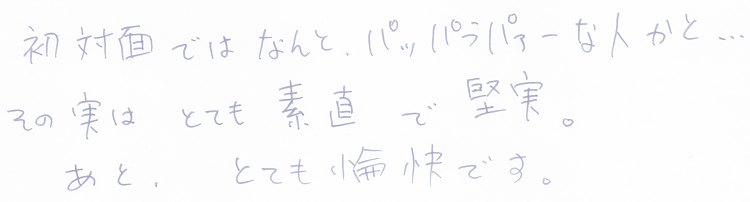 初対面ではなんと、パッパラパァーな人かと…
その実はとても素直で堅実。
あと、とても愉快です。